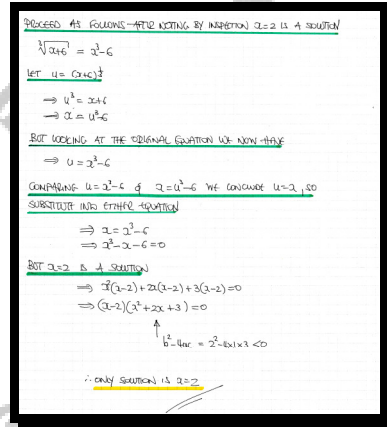 PROCEED AS FOLLOWS - AFTER NOTING BY INSPECTION x=2 IS A SOLUTION
∛(x+6) = x³-6
LET u = (x+6)^⅓
⇒ u³ = x+6
⇒ x = u³-6
BUT LOOKING AT THE ORIGINAL EQUATION WE NOW HAVE
⇒ u = x³-6
COMPARING u=x³-6 & x=u³-6 WE CONCLUDE u=x, SO
SUBSTITUTE INTO EITHER EQUATION
⇒ x = x³-6
⇒ x³-x-6=0
BUT x=2 IS A SOLUTION
⇒ x²(x-2)+2x(x-2)+3(x-2)=0
⇒ (x-2)(x²+2x+3)=0
b²-4ac = 2²-4x1x3 <0
∴ ONLY SOLUTION IS x=2